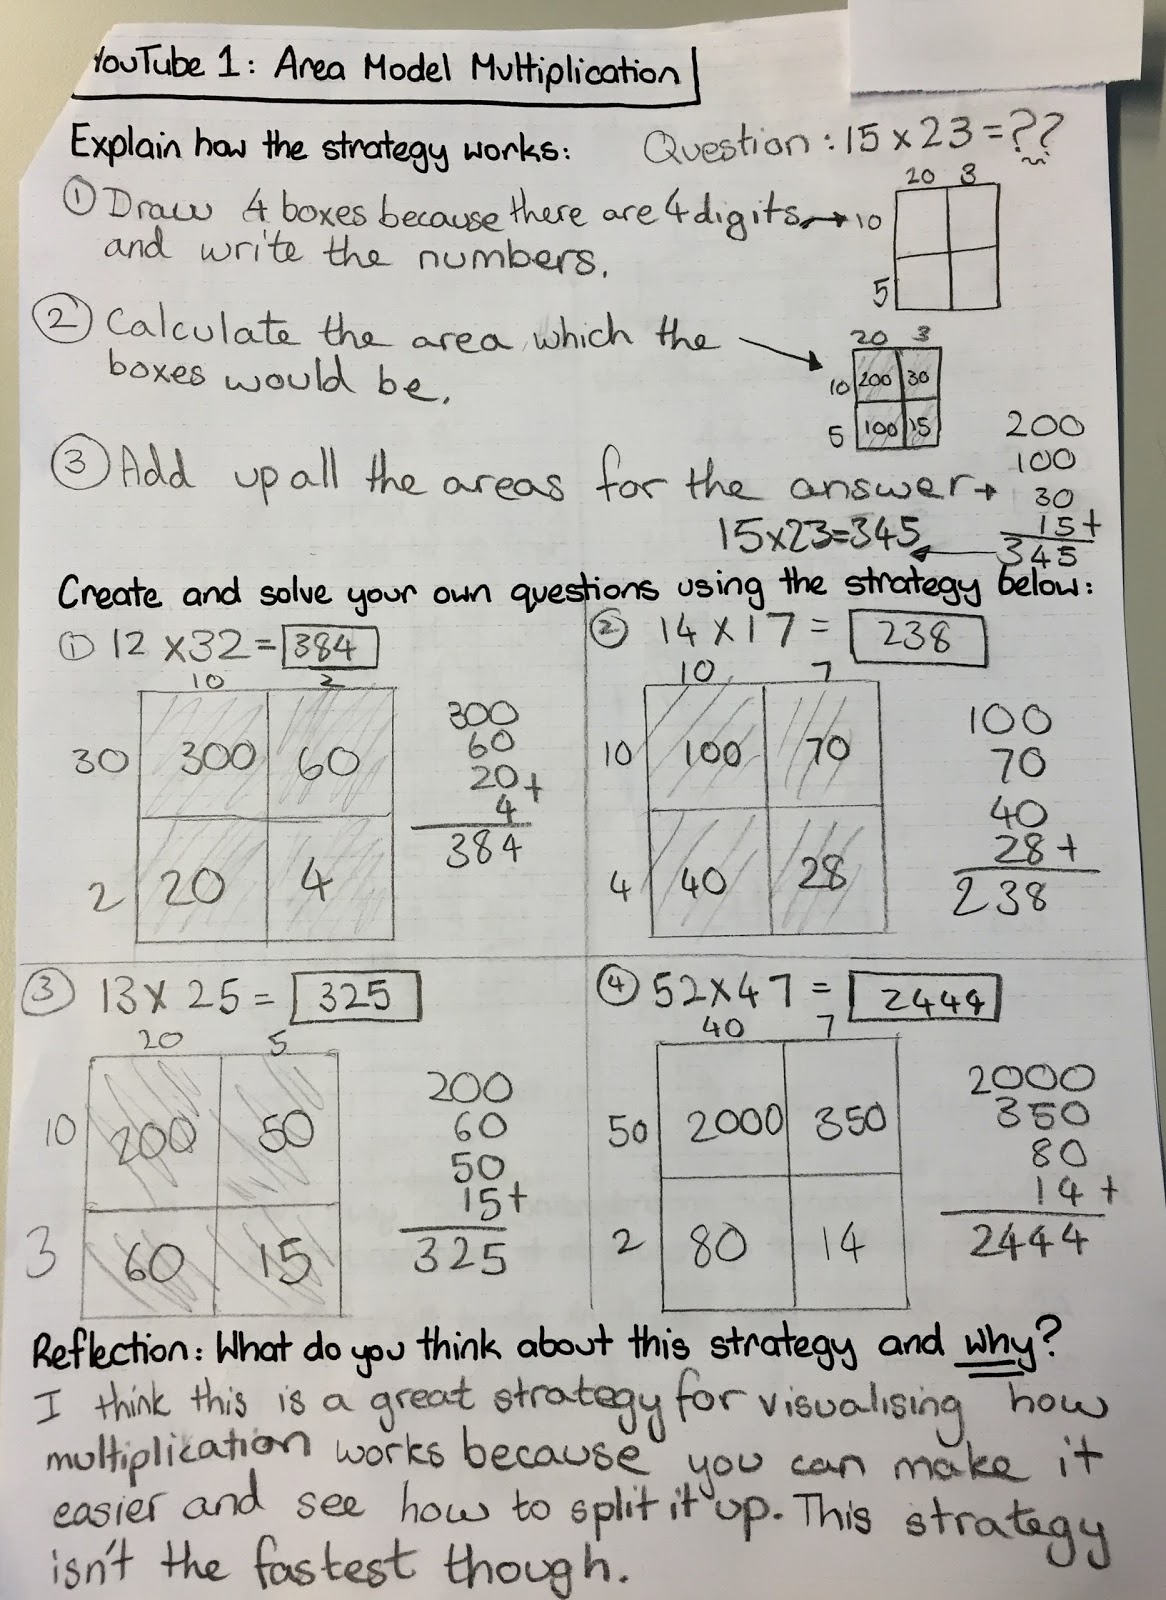 YouTube 1: Area Model Multiplication
Explain how the strategy works:
Question: 15 x 23 = ??
① Draw 4 boxes because there are 4 digits → 
and write the numbers.
20 3
10
5
② Calculate the area, which the
boxes would be.
20 3
10 200 30
5 100 15
③ Add up all the areas for the answer →
200
100
30
15+
345
15x23=345
Create and solve your own questions using the strategy below:
① 12 x32 = 384
10 2
30 300 60
2 20 4
300
60
20+
4
384
② 14 x 17 = 238
10 7
10 100 70
4 40 28
100
70
40
28+
238
③ 13 x 25 = 325
20 5
10 200 50
3 60 15
200
60
50
15+
325
④ 52x47 = 2444
40 7
50 2000 350
2 80 14
2000
350
80
14+
2444
Reflection: What do you think about this strategy and why?
I think this is a great strategy for visualising how
multiplication works because you can make it
easier and see how to split it up. This strategy
isn't the fastest though.